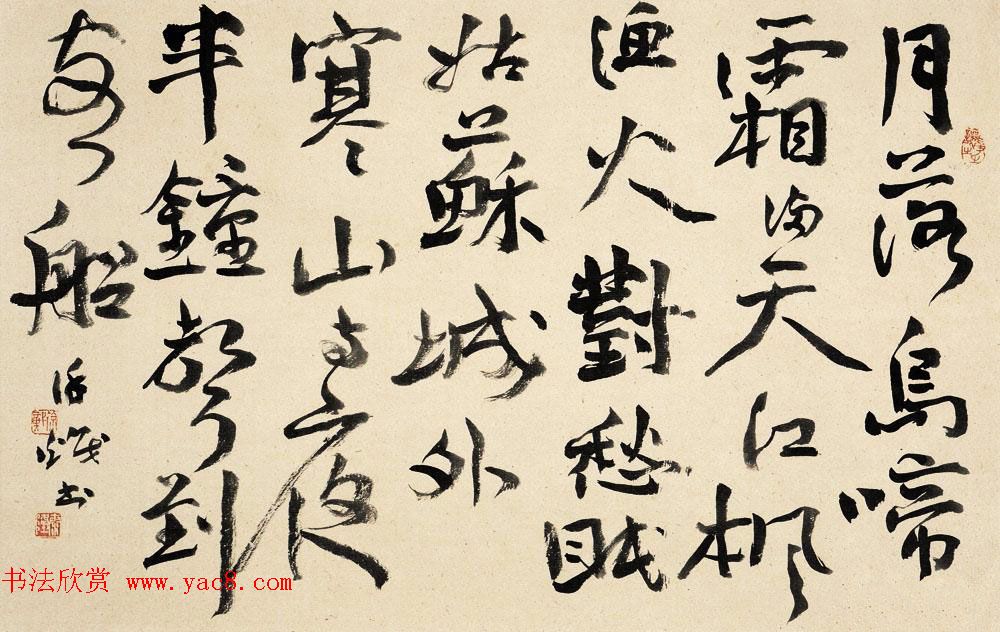 月落烏啼
霜滿天江楓
漁火對愁眠
姑蘇城外
寒山寺夜
半鐘聲到
客船
書
书法欣赏 www.yac8.com